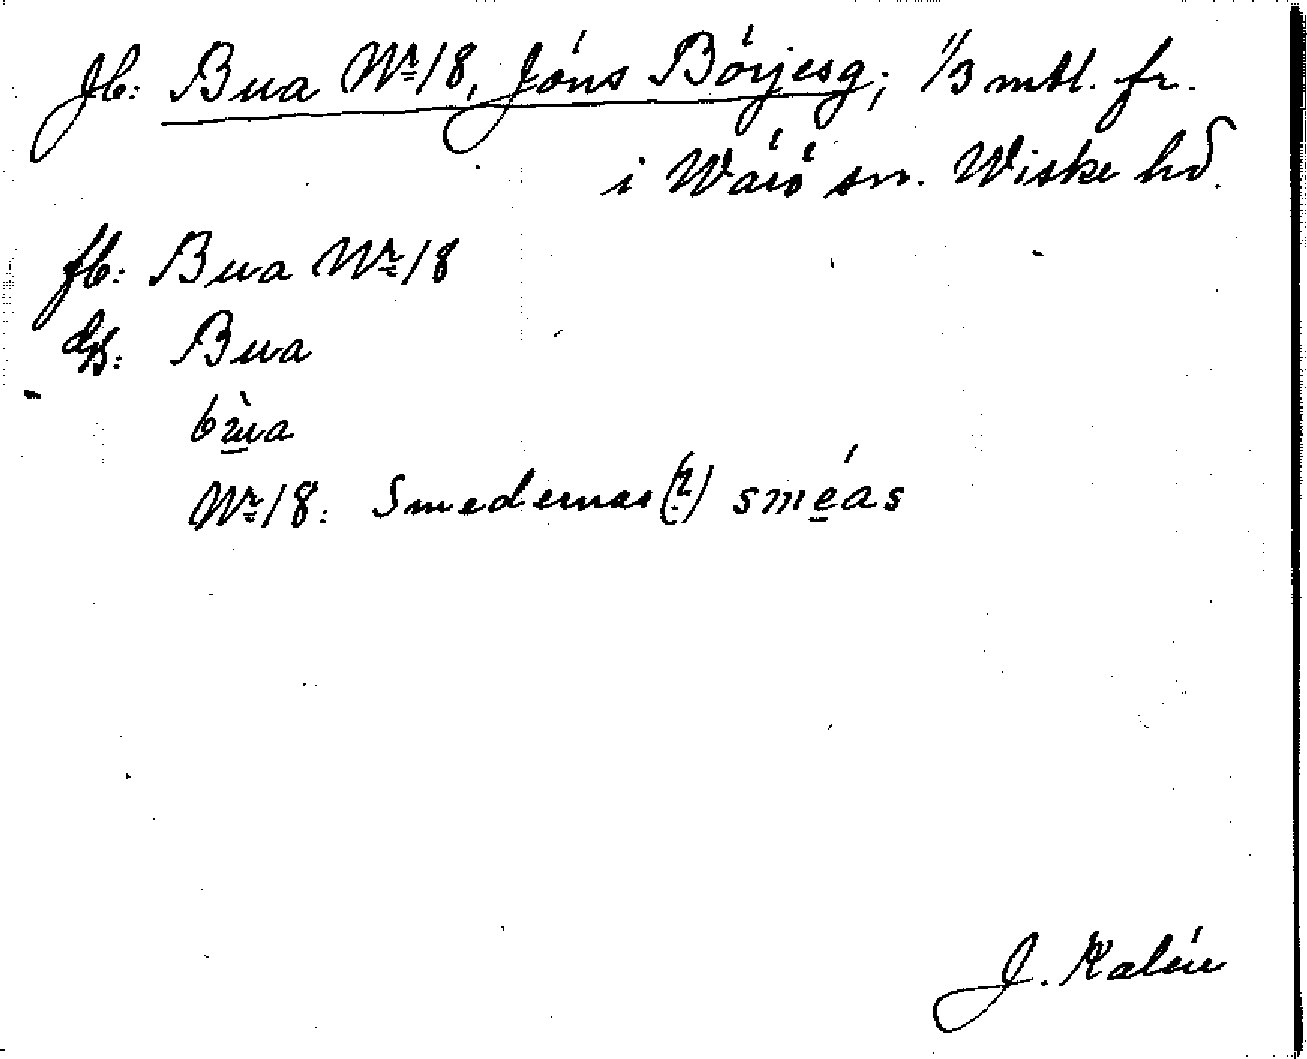 Jb: Bua Nr 18, Jöns Börjesg; 1/3 mtl. fr.
i Wärö sn. Wiske hd.
fb: Bua Nr 18
Bua
bùa
Nr 18: Smedernas (?) sméas
J. Kalén